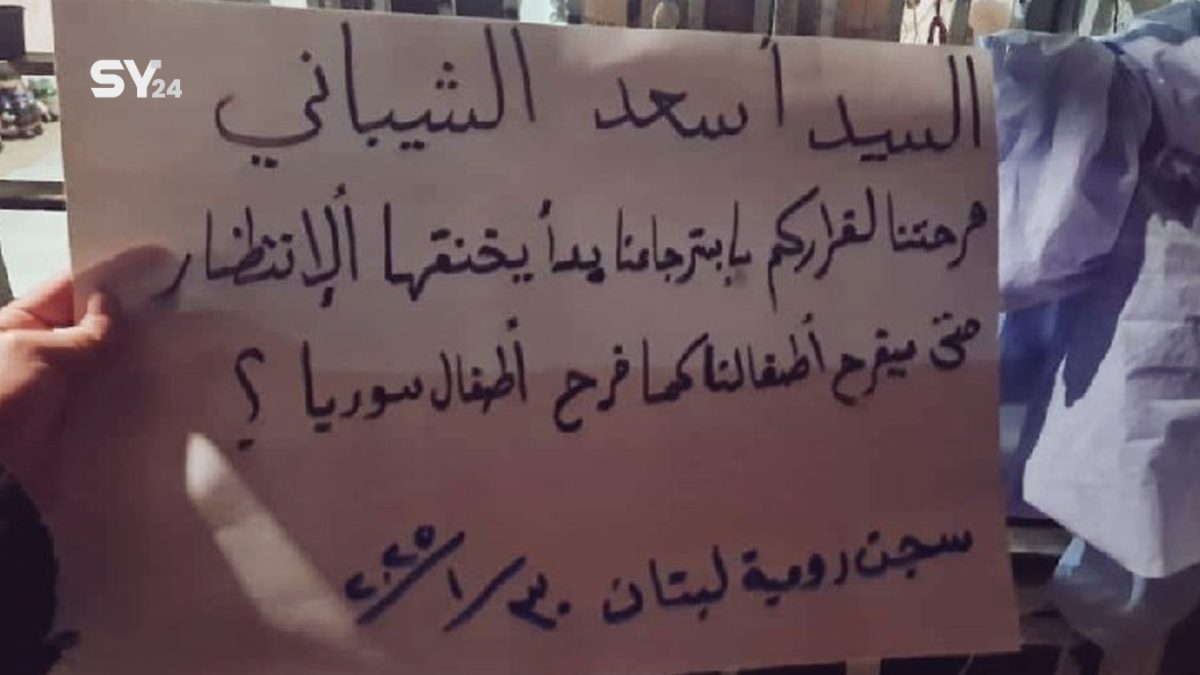 SY24
السيد أسعد الشيباني
فرحتنا لقراركم بإسترجاعنا بدأ يخنقها ألإنتظار
متى سيفرح أطفالنا كما فرح أطفال سوريا ؟
سجن رومية لبنان ٣٠/١/٢٠٢٥